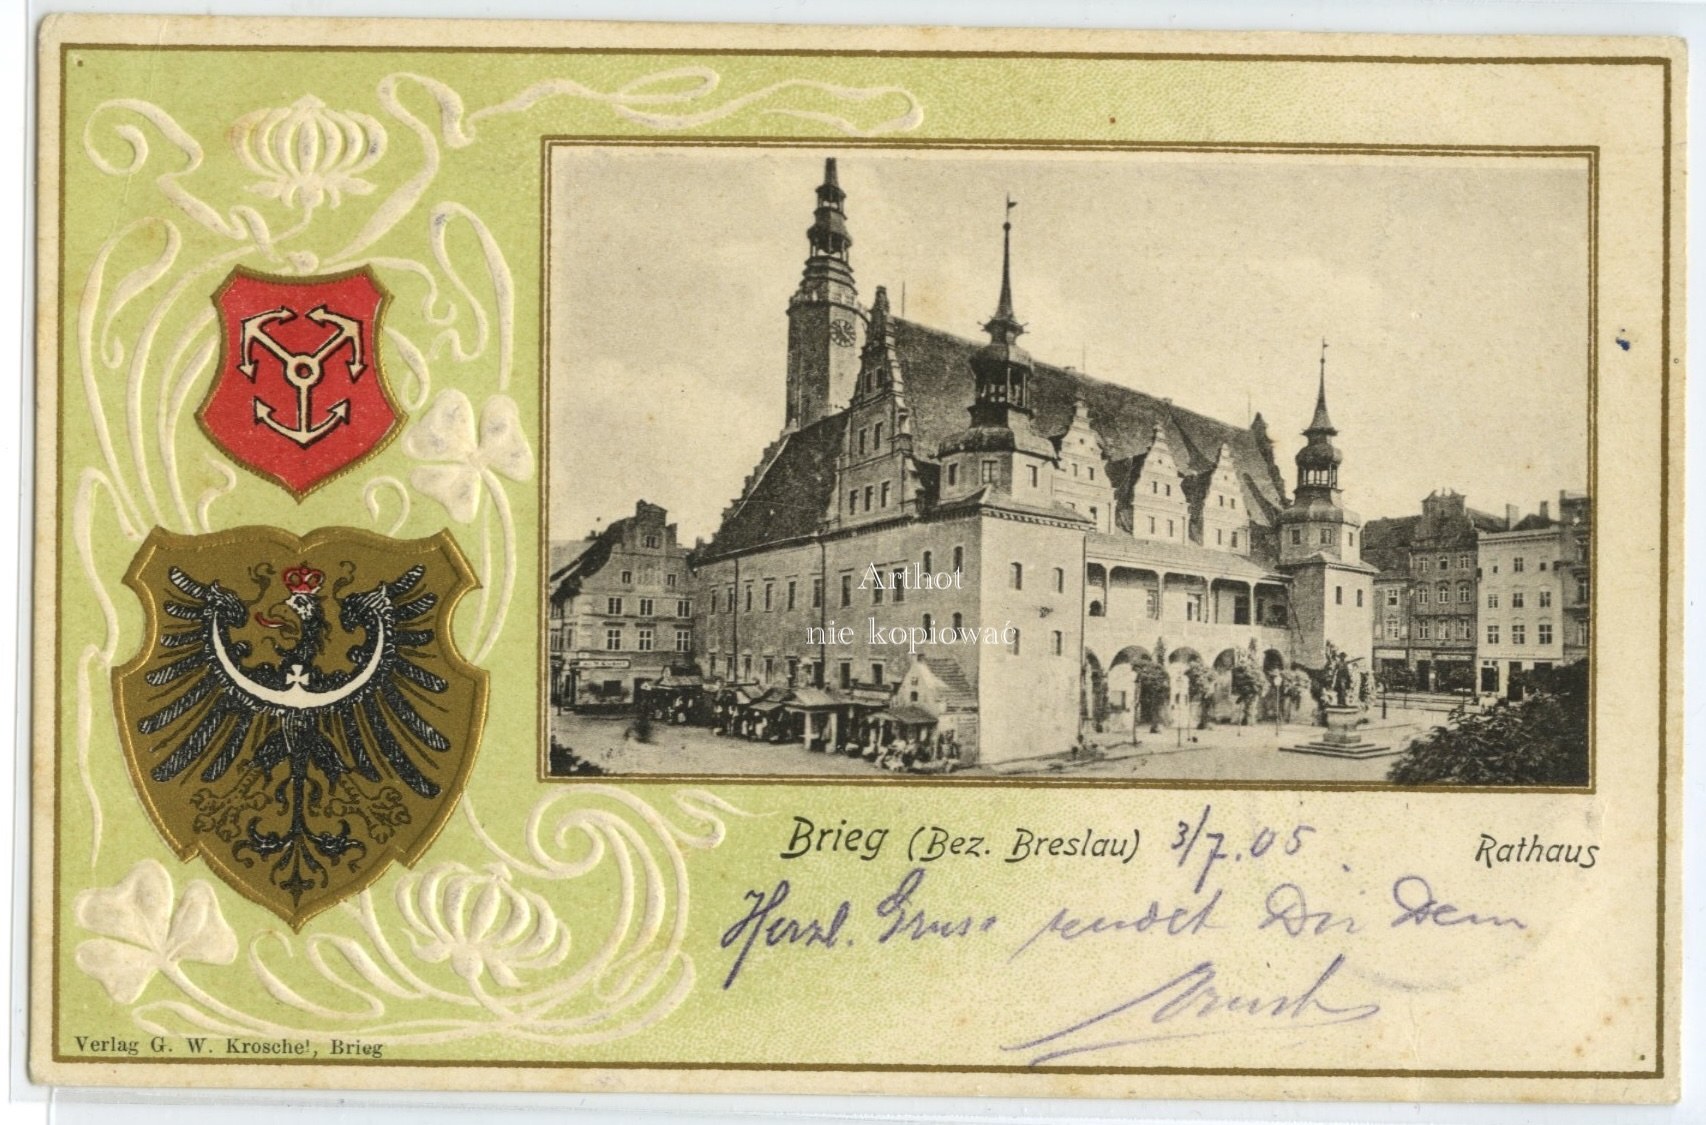 Arthot
nie kopiować
Brieg (Bez. Breslau) 3/7.05
Rathaus
Herzl. Gruss sendet Dir Dein
Verlag G. W. Kroschel, Brieg